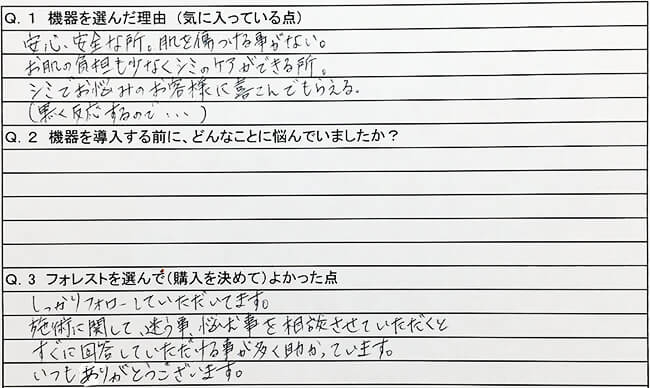 Q. 1 機器を選んだ理由（気に入っている点）
安心、安全な所。肌を傷つける事がない。
お肌の負担も少なくシミのケアができる所。
シミでお悩みのお客様に喜こんでもらえる。
(黒く反応するので・・・)
Q. 2 機器を導入する前に、どんなことに悩んでいましたか？
Q. 3 フォレストを選んで（購入を決めて）よかった点
しっかりフォローしていただいてます。
施術に関して、迷う事、悩む事を相談させていただくと
すぐに回答していただける事が多く助かっています。
いつもありがとうございます。